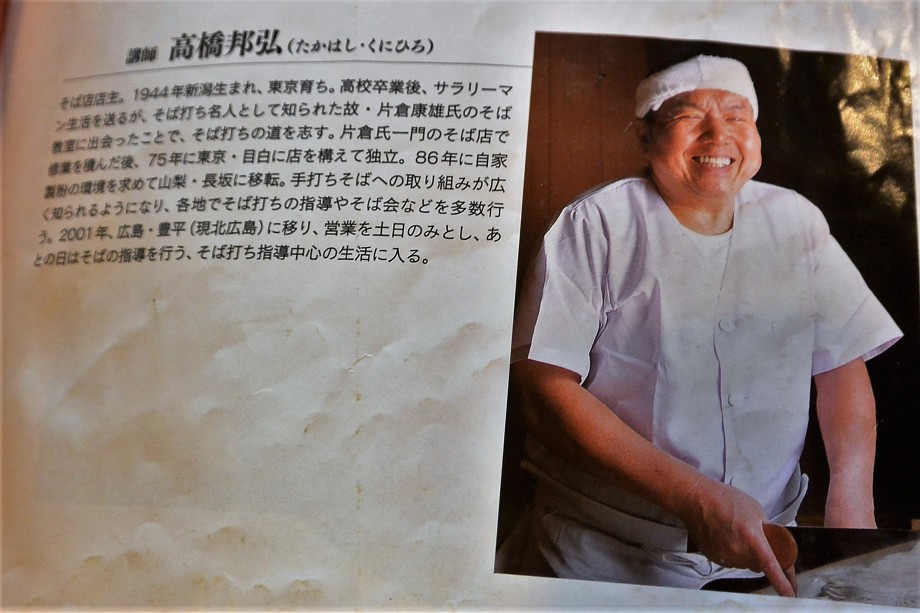 講師 高橋邦弘(たかはし・くにひろ)
そば店店主。1944年新潟生まれ、東京育ち。高校卒業後、サラリーマ
ン生活を送るが、そば打ち名人として知られた故・片倉康雄氏のそば
教室に出会ったことで、そば打ちの道を志す。片倉氏一門のそば店で
修業を積んだ後、75年に東京・目白に店を構えて独立。86年に自家
製粉の環境を求めて山梨・長坂に移転。手打ちそばへの取り組みが広
く知られるようになり、各地でそば打ちの指導やそば会などを多数行
う。2001年、広島・豊平(現北広島)に移り、営業を土日のみとし、あ
との日はそばの指導を行う、そば打ち指導中心の生活に入る。